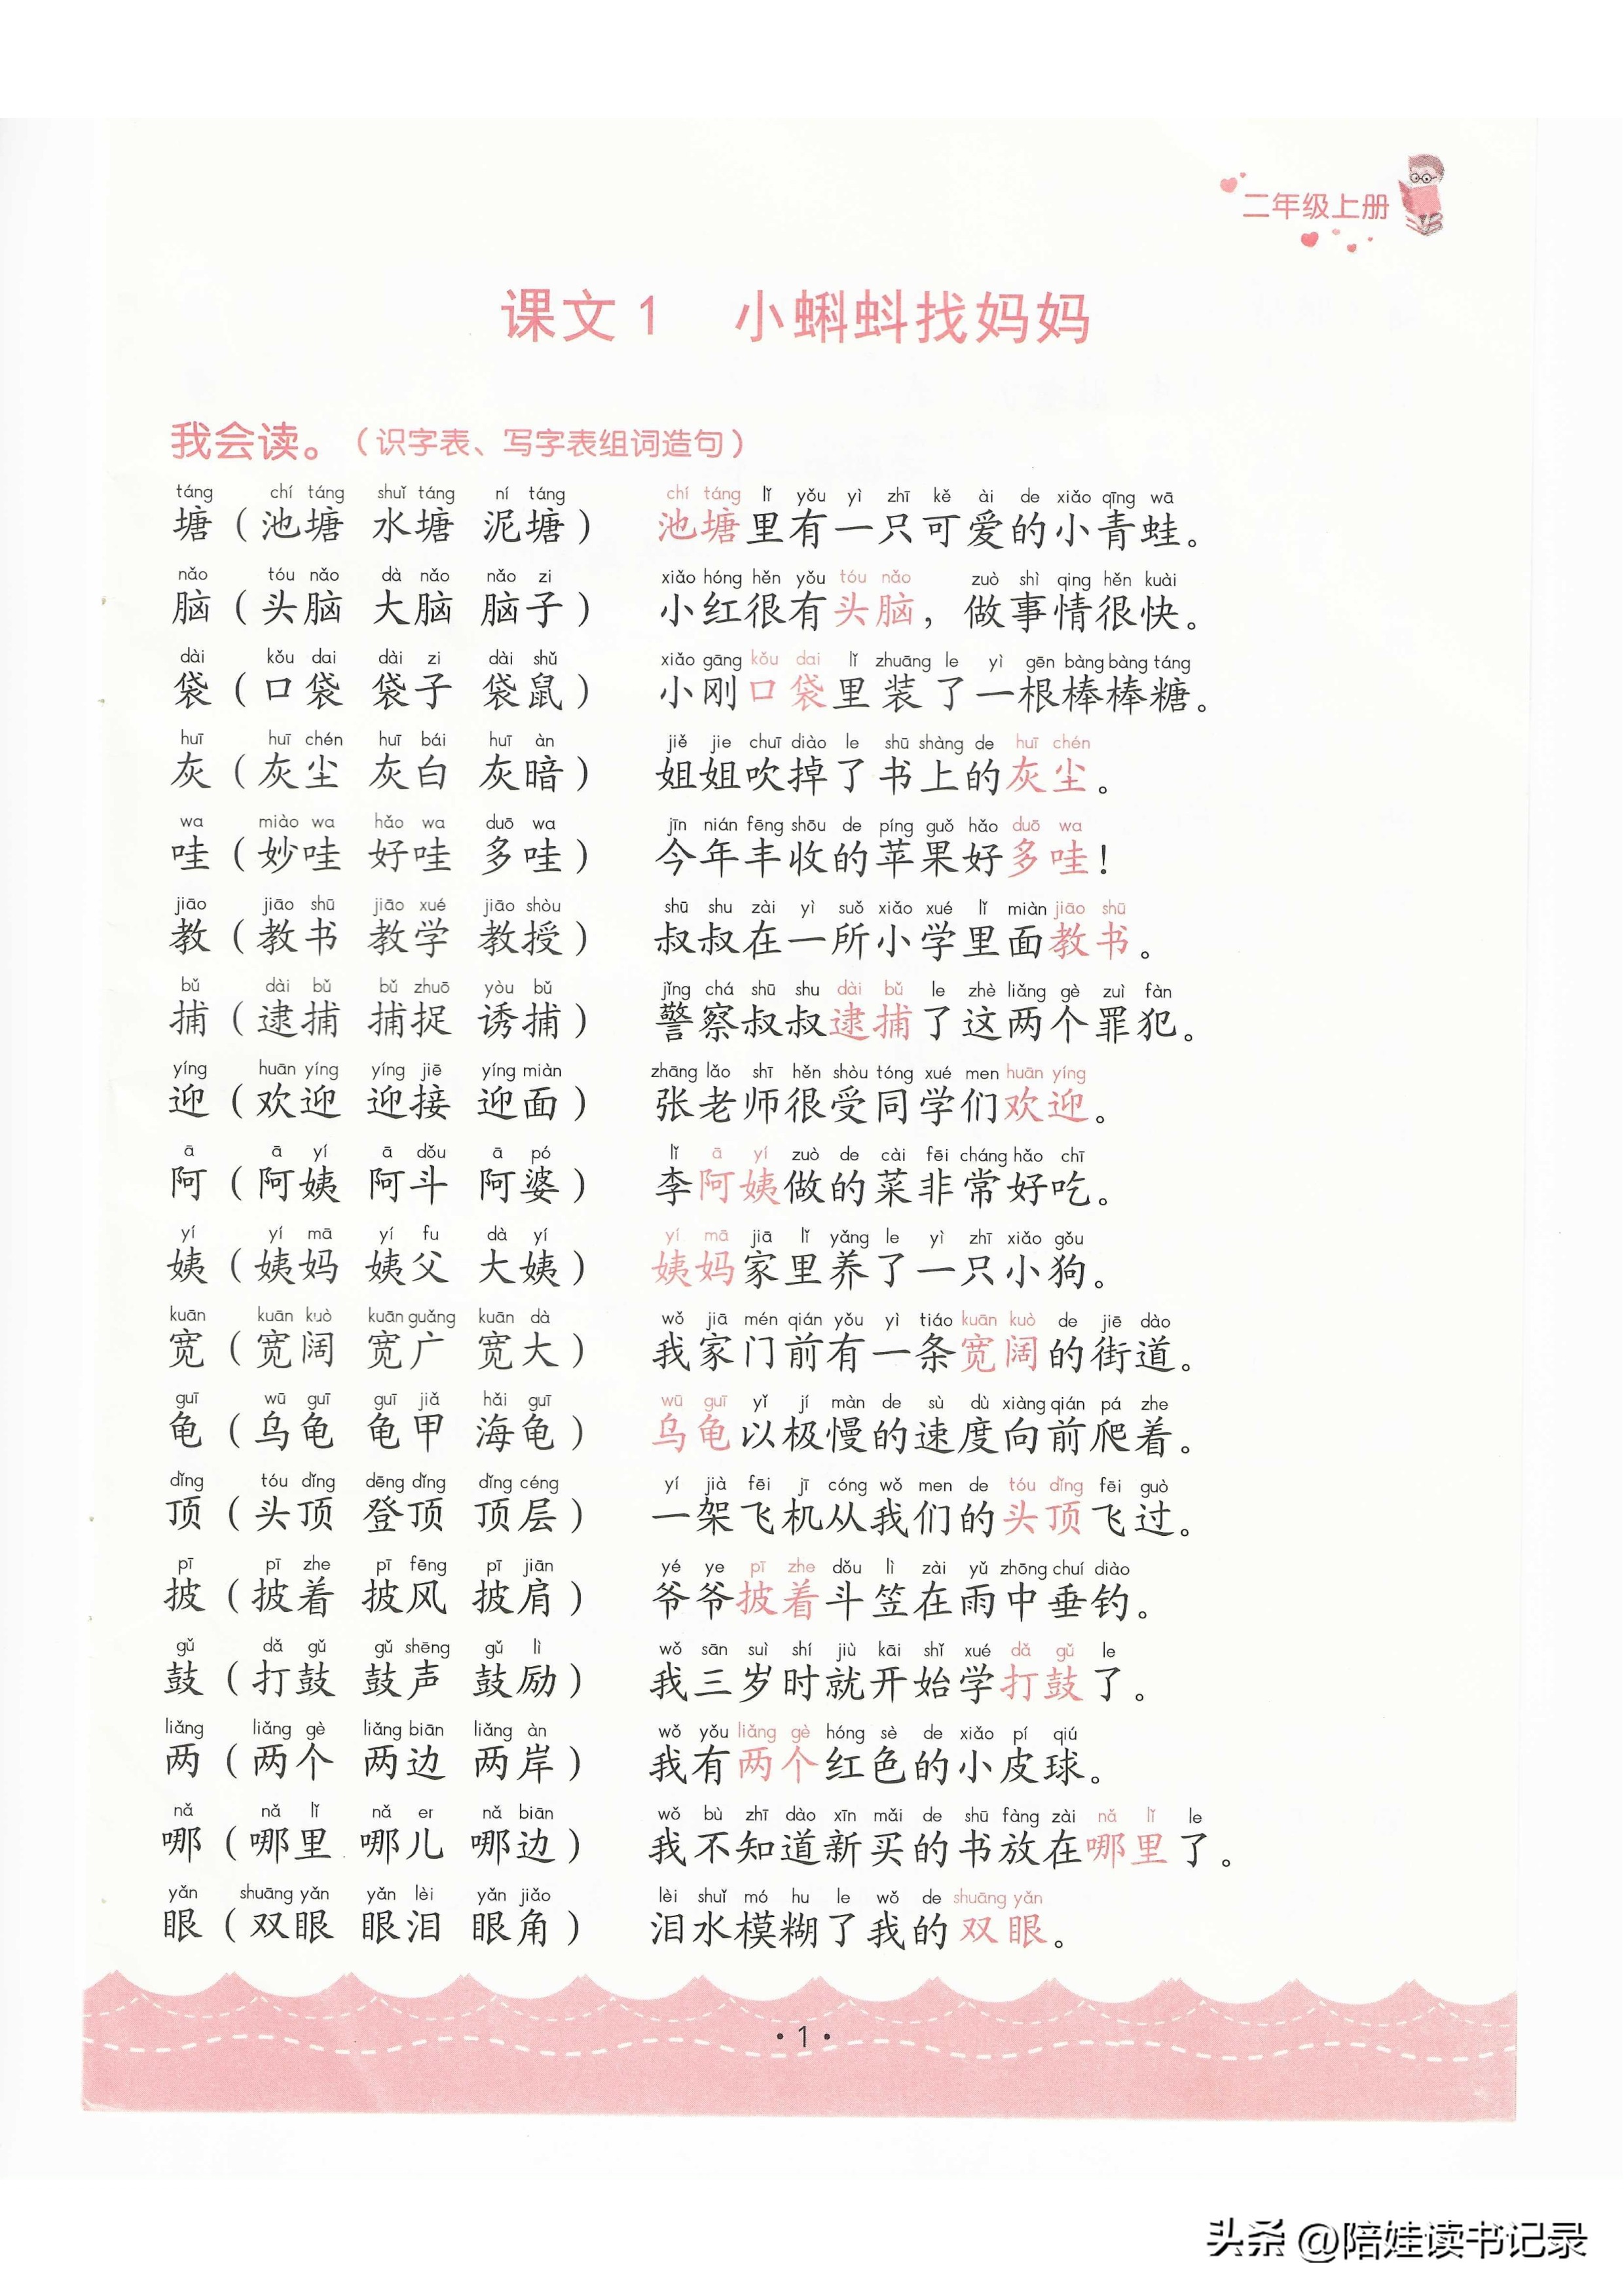 二年级上册
课文1 小蝌蚪找妈妈
我会读。（识字表、写字表组词造句）
táng chí táng shuǐ táng ní táng chí táng lǐ yǒu yì zhī kě ài de xiǎo qīng wā
塘（池塘 水塘 泥塘） 池塘里有一只可爱的小青蛙。
nǎo tóu nǎo dà nǎo nǎo zi xiǎo hóng hěn yǒu tóu nǎo zuò shì qing hěn kuài
脑（头脑 大脑 脑子） 小红很有头脑，做事情很快。
dài kǒu dai dài zi dài shǔ xiǎo gāng kǒu dai lǐ zhuāng le yì gēn bàng bàng táng
袋（口袋 袋子 袋鼠） 小刚口袋里装了一根棒棒糖。
huī huī chén huī bái huī àn jiě jie chuī diào le shū shàng de huī chén
灰（灰尘 灰白 灰暗） 姐姐吹掉了书上的灰尘。
wa miào wa hǎo wa duō wa jīn nián fēng shōu de píng guǒ hǎo duō wa
哇（妙哇 好哇 多哇） 今年丰收的苹果好多哇！
jiāo jiāo shū jiāo xué jiāo shòu shū shu zài yì suǒ xiǎo xué lǐ miàn jiāo shū
教（教书 教学 教授） 叔叔在一所小学里面教书。
bǔ dài bǔ bǔ zhuō yòu bǔ jǐng chá shū shu dài bǔ le zhè liǎng gè zuì fàn
捕（逮捕 捕捉 诱捕） 警察叔叔逮捕了这两个罪犯。
yíng huān yíng yíng jiē yíng miàn zhāng lǎo shī hěn shòu tóng xué men huān yíng
迎（欢迎 迎接 迎面） 张老师很受同学们欢迎。
ā ā yí ā dǒu ā pó lǐ ā yí zuò de cài fēi cháng hǎo chī
阿（阿姨 阿斗 阿婆） 李阿姨做的菜非常好吃。
yí yí mā yí fu dà yí yí mā jiā lǐ yǎng le yì zhī xiǎo gǒu
姨（姨妈 姨父 大姨） 姨妈家里养了一只小狗。
kuān kuān kuò kuān guǎng kuān dà wǒ jiā mén qián yǒu yì tiáo kuān kuò de jiē dào
宽（宽阔 宽广 宽大） 我家门前有一条宽阔的街道。
guī wū guī guī jiǎ hǎi guī wū guī yǐ jí màn de sù dù xiàng qián pá zhe
龟（乌龟 龟甲 海龟） 乌龟以极慢的速度向前爬着。
dǐng tóu dǐng dēng dǐng dǐng céng yí jià fēi jī cóng wǒ men de tóu dǐng fēi guò
顶（头顶 登顶 顶层） 一架飞机从我们的头顶飞过。
pī pī zhe pī fēng pī jiān yé ye pī zhe dǒu lì zài yǔ zhōng chuí diào
披（披着 披风 披肩） 爷爷披着斗笠在雨中垂钓。
gǔ dǎ gǔ gǔ shēng gǔ lì wǒ sān suì shí jiù kāi shǐ xué dǎ gǔ le
鼓（打鼓 鼓声 鼓励） 我三岁时就开始学打鼓了。
liǎng liǎng gè liǎng biān liǎng àn wǒ yǒu liǎng gè hóng sè de xiǎo pí qiú
两（两个 两边 两岸） 我有两个红色的小皮球。
nǎ nǎ lǐ nǎ er nǎ biān wǒ bù zhī dào xīn mǎi de shū fàng zài nǎ lǐ le
哪（哪里 哪儿 哪边） 我不知道新买的书放在哪里了。
yǎn shuāng yǎn yǎn lèi yǎn jiǎo lèi shuǐ mó hu le wǒ de shuāng yǎn
眼（双眼 眼泪 眼角） 泪水模糊了我的双眼。
·1·
头条 @陪娃读书记录